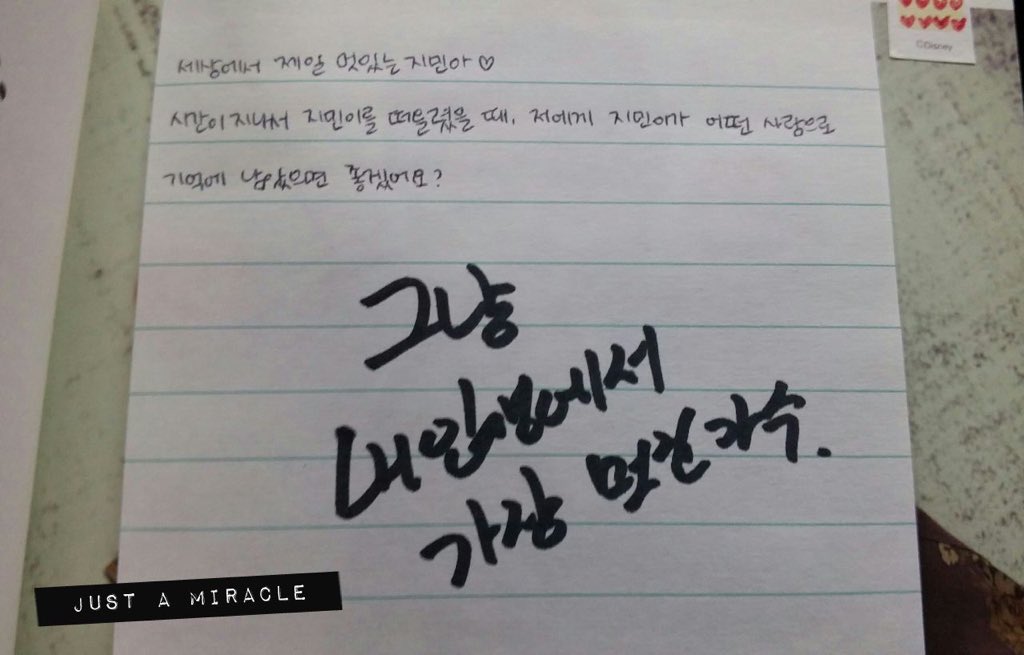 세상에서 제일 멋있는 지민아♡
시간이 지나서 지민이를 떠올렸을 때, 저에게 지민이가 어떤 사람으로
기억에 남았으면 좋겠어요?
그냥
내 인생에서
가장 멋진 가수.
JUST A MIRACLE
©Disney